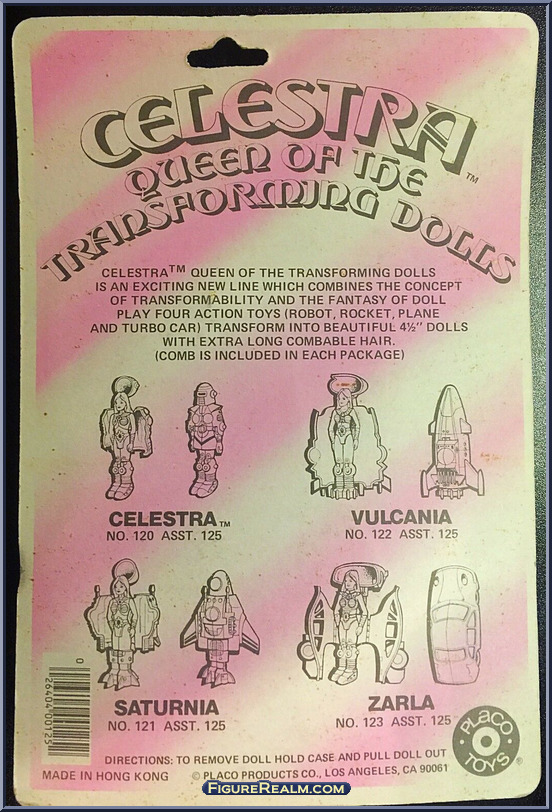 CELESTRA™
QUEEN OF THE
TRANSFORMING DOLLS
CELESTRA™ QUEEN OF THE TRANSFORMING DOLLS
IS AN EXCITING NEW LINE WHICH COMBINES THE CONCEPT
OF TRANSFORMABILITY AND THE FANTASY OF DOLL
PLAY FOUR ACTION TOYS (ROBOT, ROCKET, PLANE
AND TURBO CAR) TRANSFORM INTO BEAUTIFUL 4½" DOLLS
WITH EXTRA LONG COMBABLE HAIR.
(COMB IS INCLUDED IN EACH PACKAGE)
CELESTRA™
NO. 120 ASST. 125
VULCANIA
NO. 122 ASST. 125
SATURNIA
NO. 121 ASST. 125
ZARLA
NO. 123 ASST. 125
0 26404 00125
PLACO TOYS®
DIRECTIONS: TO REMOVE DOLL HOLD CASE AND PULL DOLL OUT
MADE IN HONG KONG © PLACO PRODUCTS CO., LOS ANGELES, CA 90061
FIGUREREALM.COM